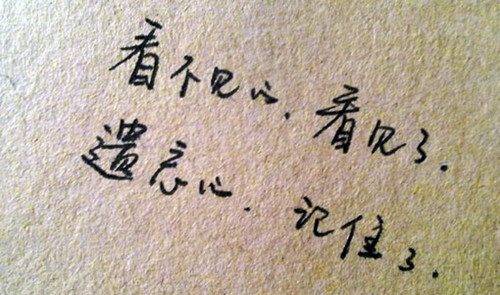 看不见的，看见了.
遗忘的. 记住了.